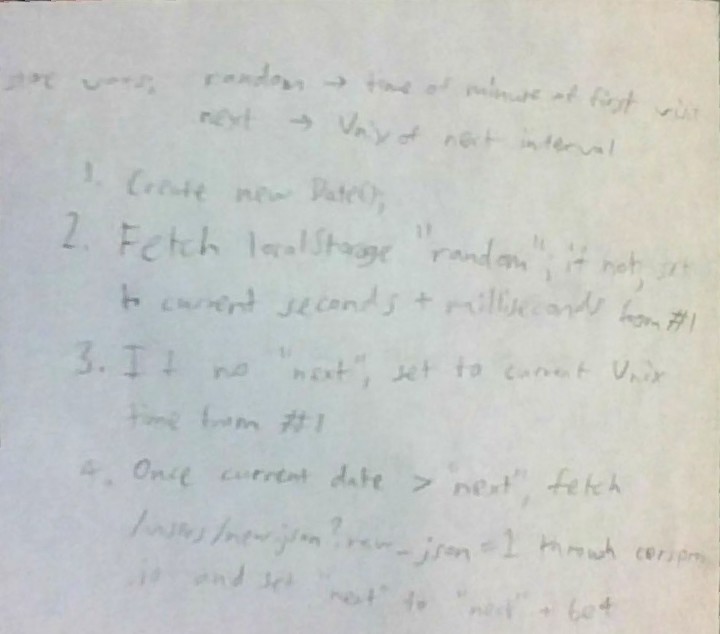 vars: random → time of minute of first visit
next → Unix of next interval
1. Create new Date();
2. Fetch localStorage "random"; if not, set
to current seconds + milliseconds from #1
3. If no "next", set to current Unix
time from #1
4. Once current date > "next", fetch
/users/new.json?raw_json=1 through corspro
.io and set "next" to "next" + 6e4